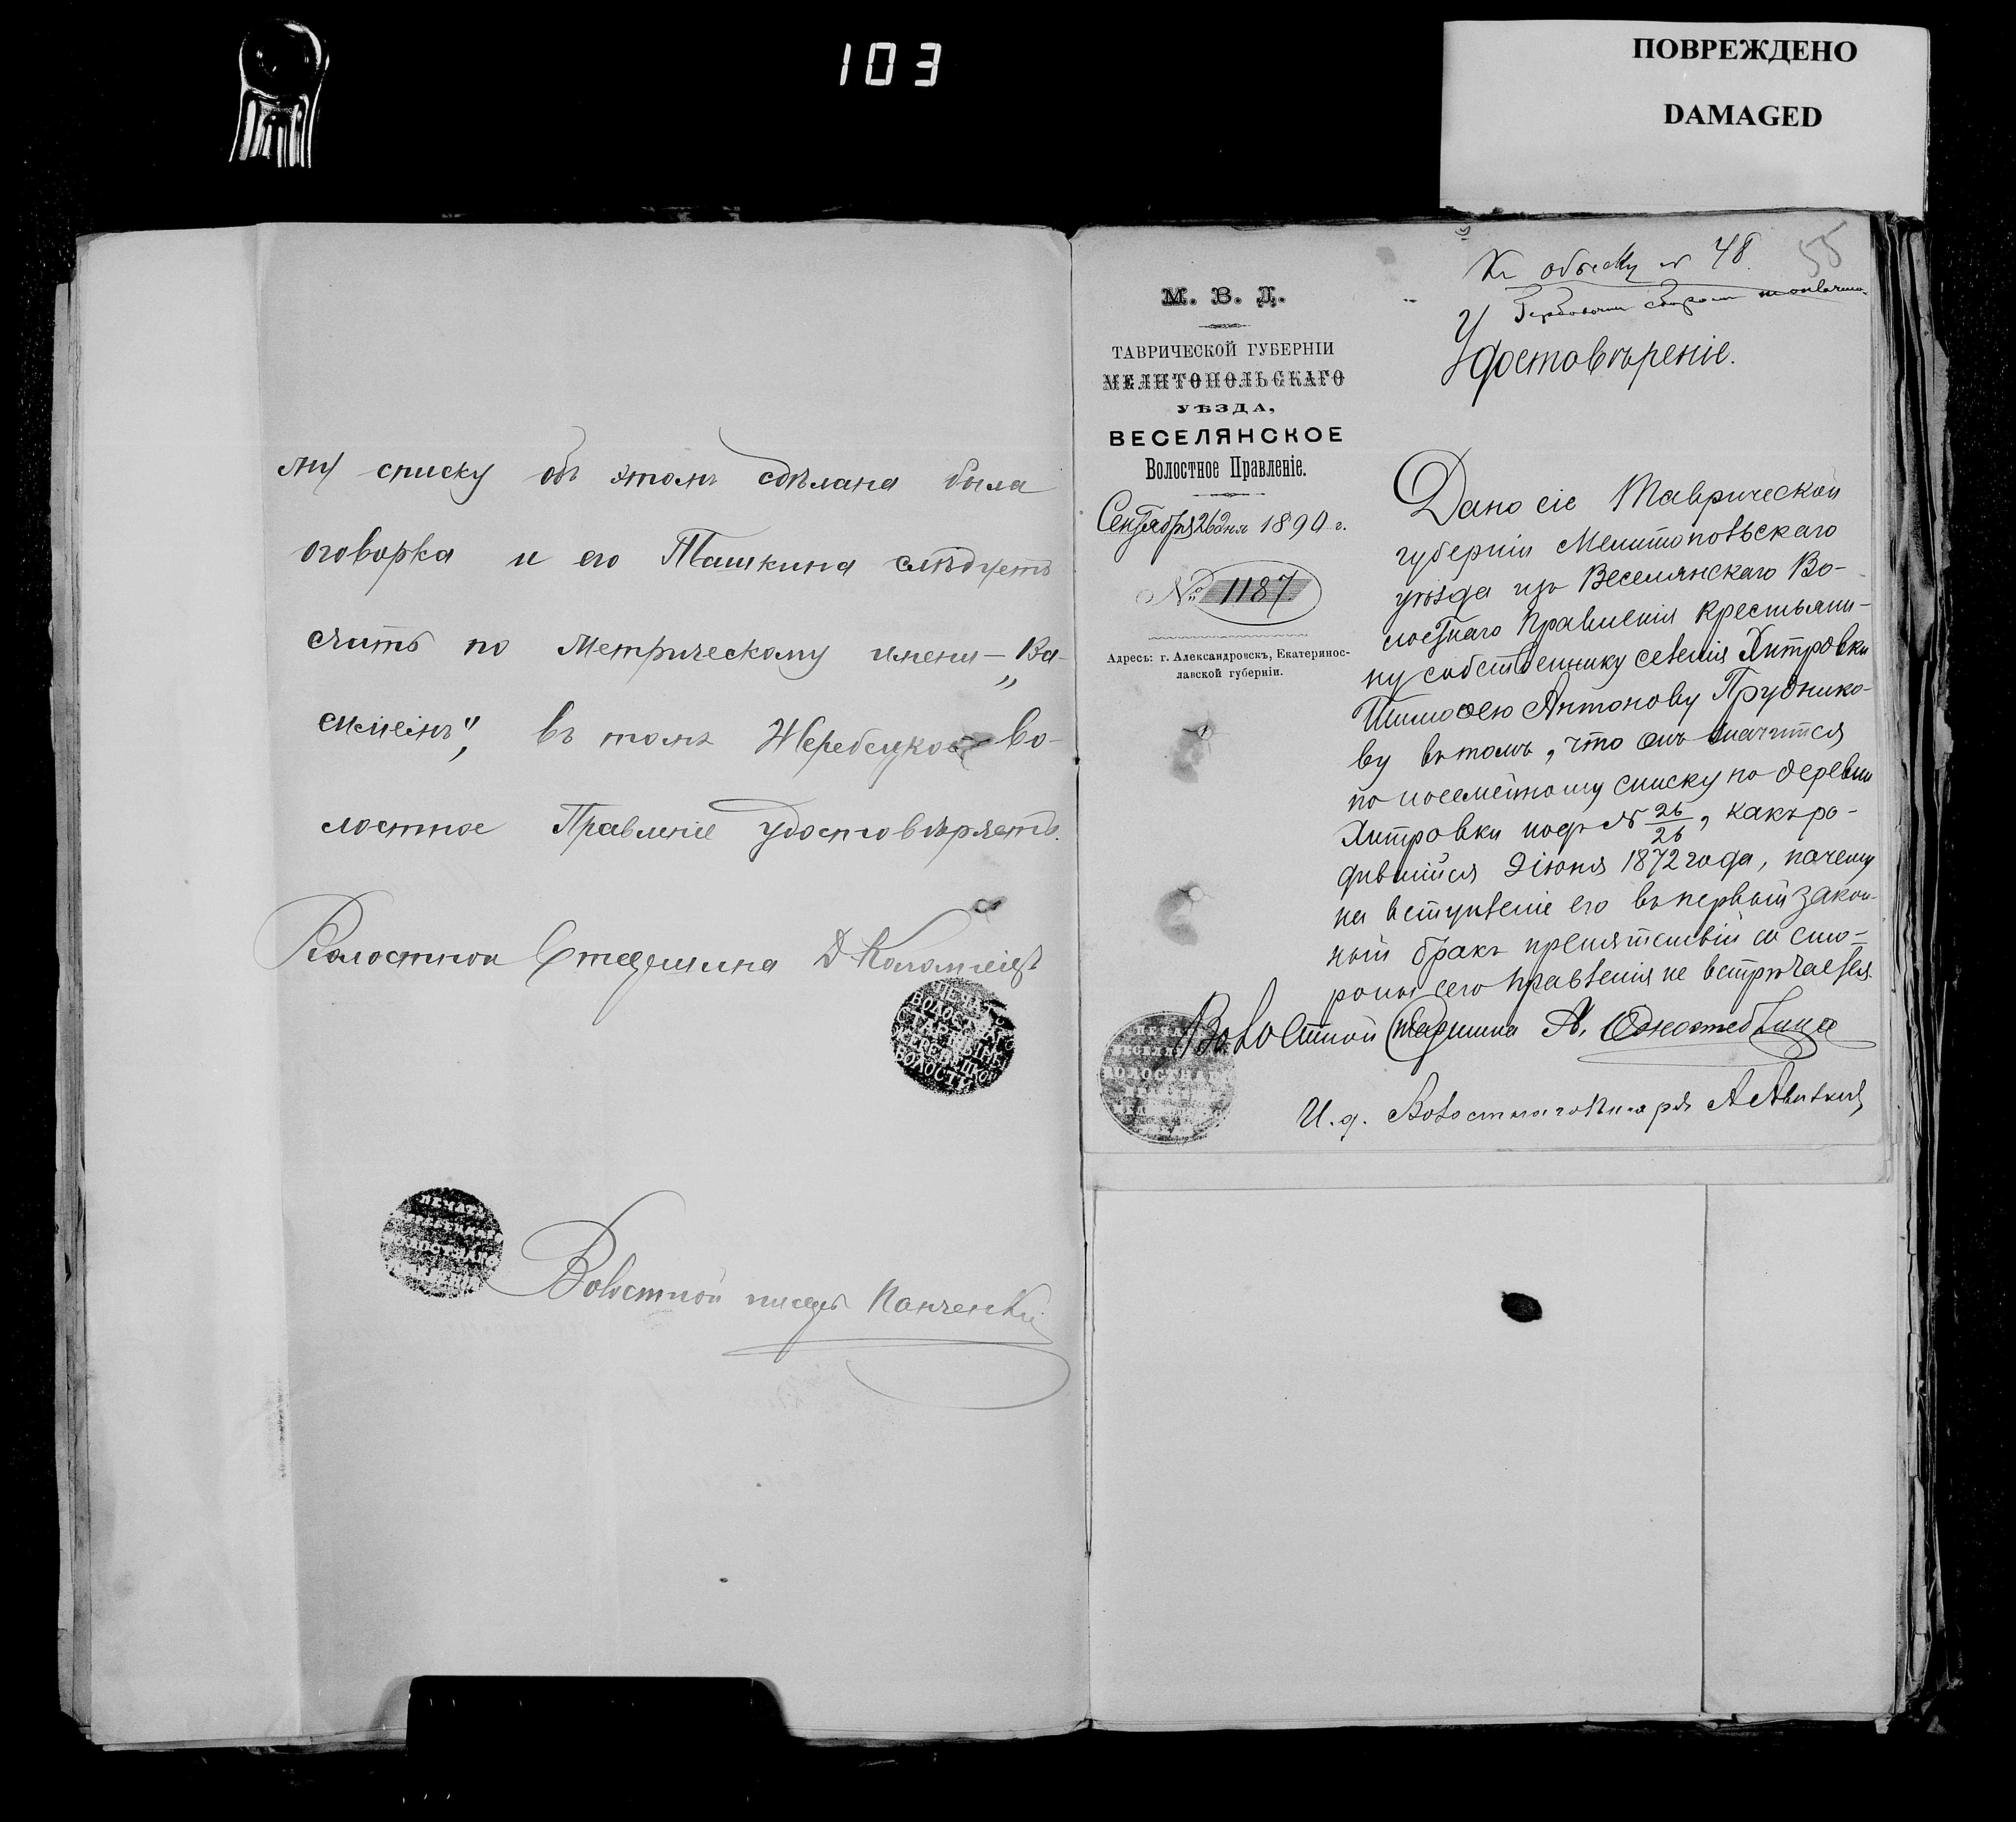 103
ПОВРЕЖДЕНО
DAMAGED
му списку объ этомъ сдѣлана была
оговорка и его Ташкина слѣдуетъ
счить по Метрическому имени — „Ва-
силiемъ“, въ томъ Жеребецкое во-
лостное Правленiе удостовѣряетъ.
Волостной Старшина Д Коломiецъ
ПЕЧАТЬ
ВОЛОСТНАГО
СТАРШИНЫ
ЖЕРЕБЕЦКОЙ
ВОЛОСТИ
Волостной писарь Панченко
55
Къ обыску № 48.
Гербовымъ сборомъ
М. В. Д.
ТАВРИЧЕСКОЙ ГУБЕРНIИ
МЕЛИТОПОЛЬСКАГО
УѢЗДА,
ВЕСЕЛЯНСКОЕ
Волостное Правленiе.
Сентября 26 дня 1890 г.
№ 1187
Адресъ: г. Александровскъ, Екатеринос-
лавской губернiи.
Удостовѣренiе.
Дано сiе Таврической
губернiи Мелитопольскаго
уѣзда изъ Веселянскаго Во-
лостнаго Правленiя крестьяни-
ну собственнику селенiя Хитровки
Тимофею Антонову Пруднико-
ву въ томъ, что онъ значится
по посемейному списку по деревни
Хитровки подъ № 26/26, какъ ро-
дившiйся 2 iюня 1872 года, почему
на вступленiе его въ первый закон-
ный бракъ препятствiй со сто-
роны сего Правленiя не встрѣчается.
Волостной Старшина А.
И. д. Волостнаго Писаря А